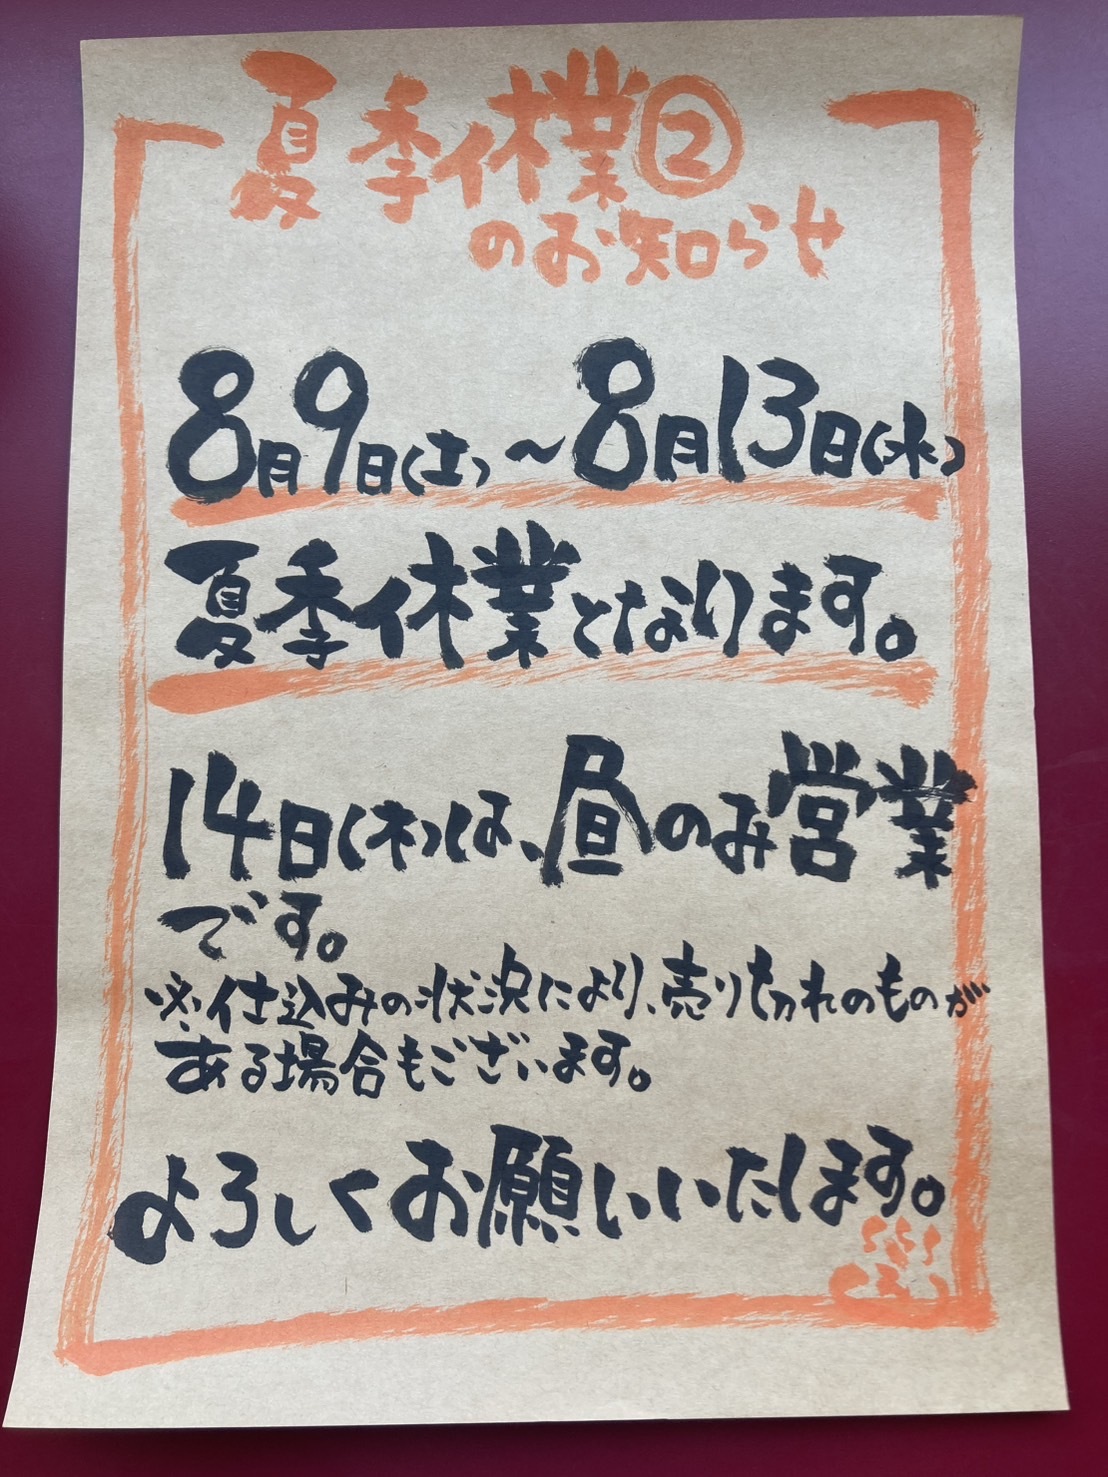 夏季休業②
のお知らせ
8月9日(土)～8月13日(水)
夏季休業となります。
14日(木)は、昼のみ営業
です。
※仕込みの状況により、売り切れのものが
ある場合もございます。
よろしくお願いいたします。